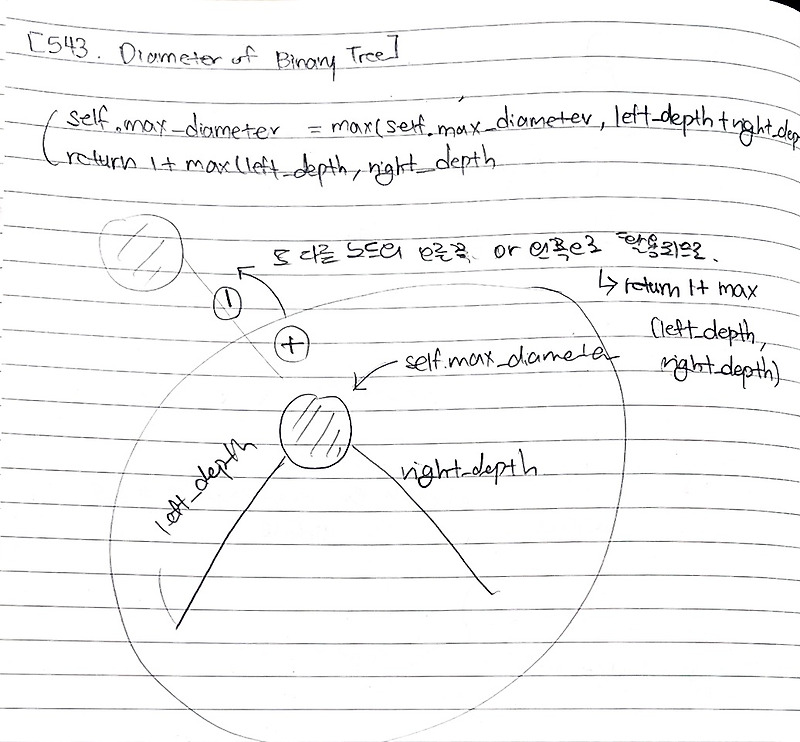 [543. Diameter of Binary Tree]
self.max_diameter = max(self.max_diameter, left_depth + right_dep
return 1+ max(left_depth, right_depth
또 다른 노드의 오른쪽 or 왼쪽으로 활용되므로.
↳ return 1+ max
(left_depth,
right_depth)
1
+
self.max_diameter
left_depth
right_depth